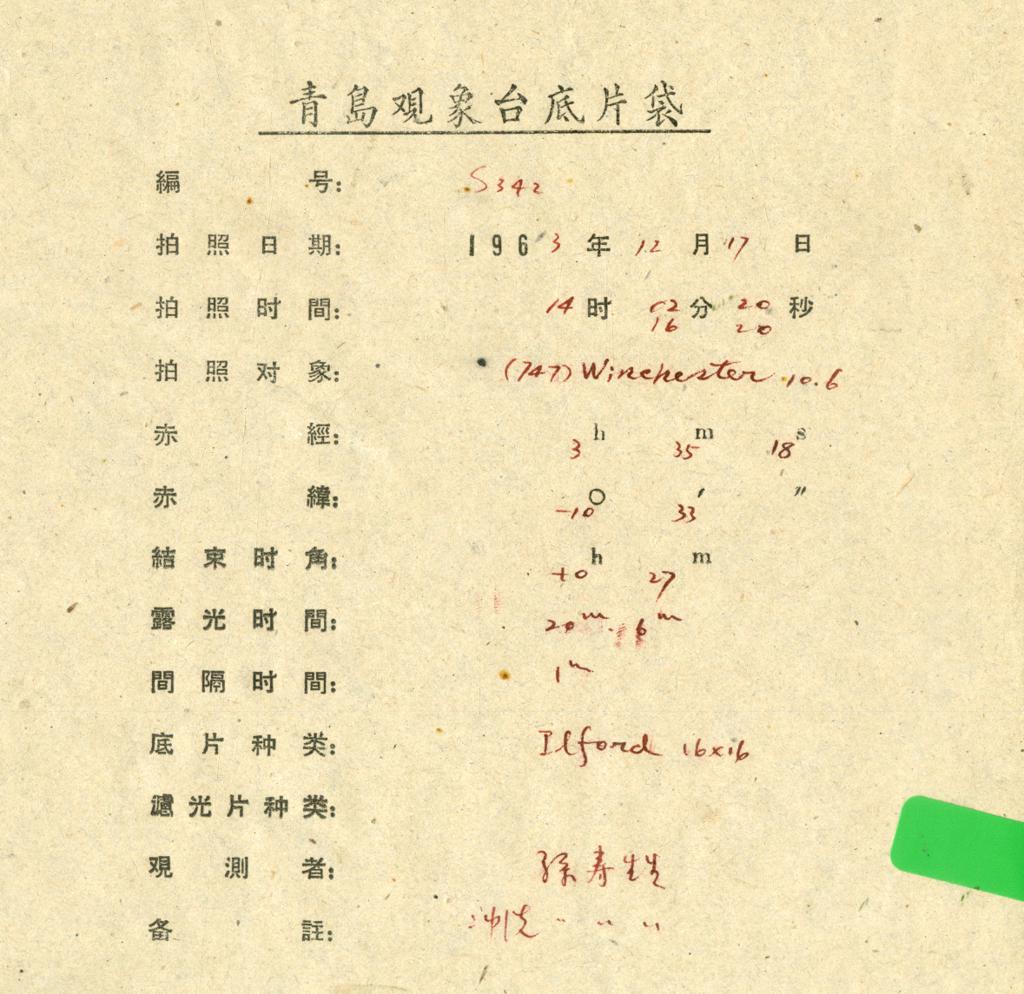 青島观象台底片袋
編号: S342
拍照日期: 1963年12月17日
拍照时間: 14时02分20秒
16 20
拍照对象: (747) Winchester 10.6
赤經: 3h 35m 18s
赤緯: -10° 33′ ″
結束时角: +0h 27m
露光时間: 20m. 6m
間隔时間: 1m
底片种类: Ilford 16x16
濾光片种类:
观測者: 孫寿
备註: 冲洗 〃 〃 〃